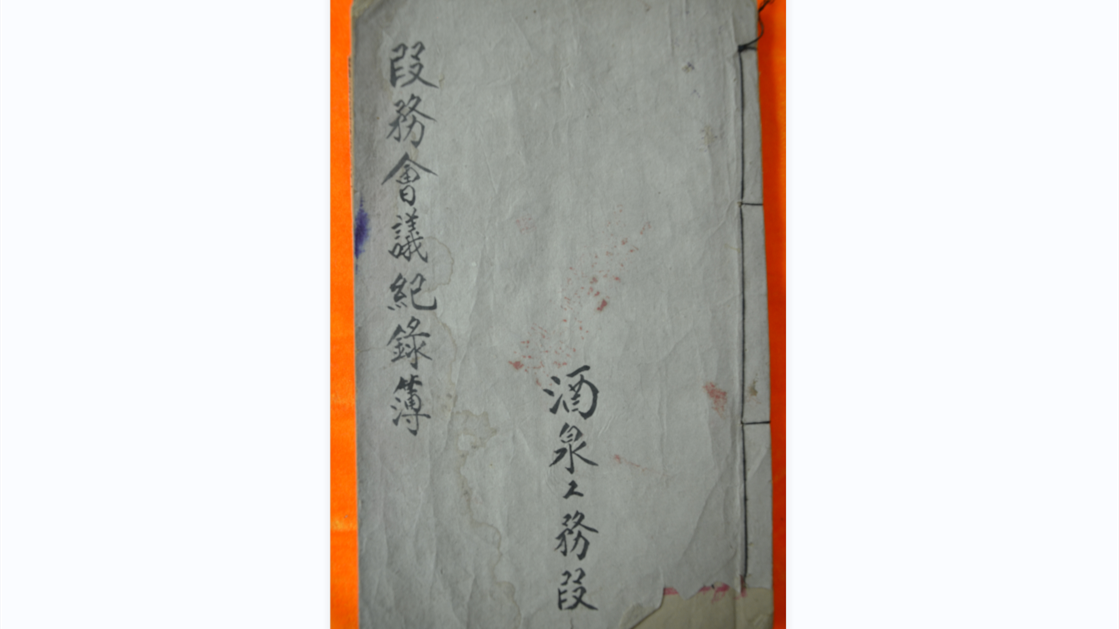 段務會議紀錄簿
酒泉工務段